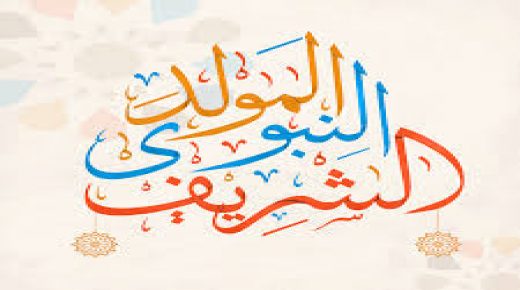 المولد
النبوي
الشريف